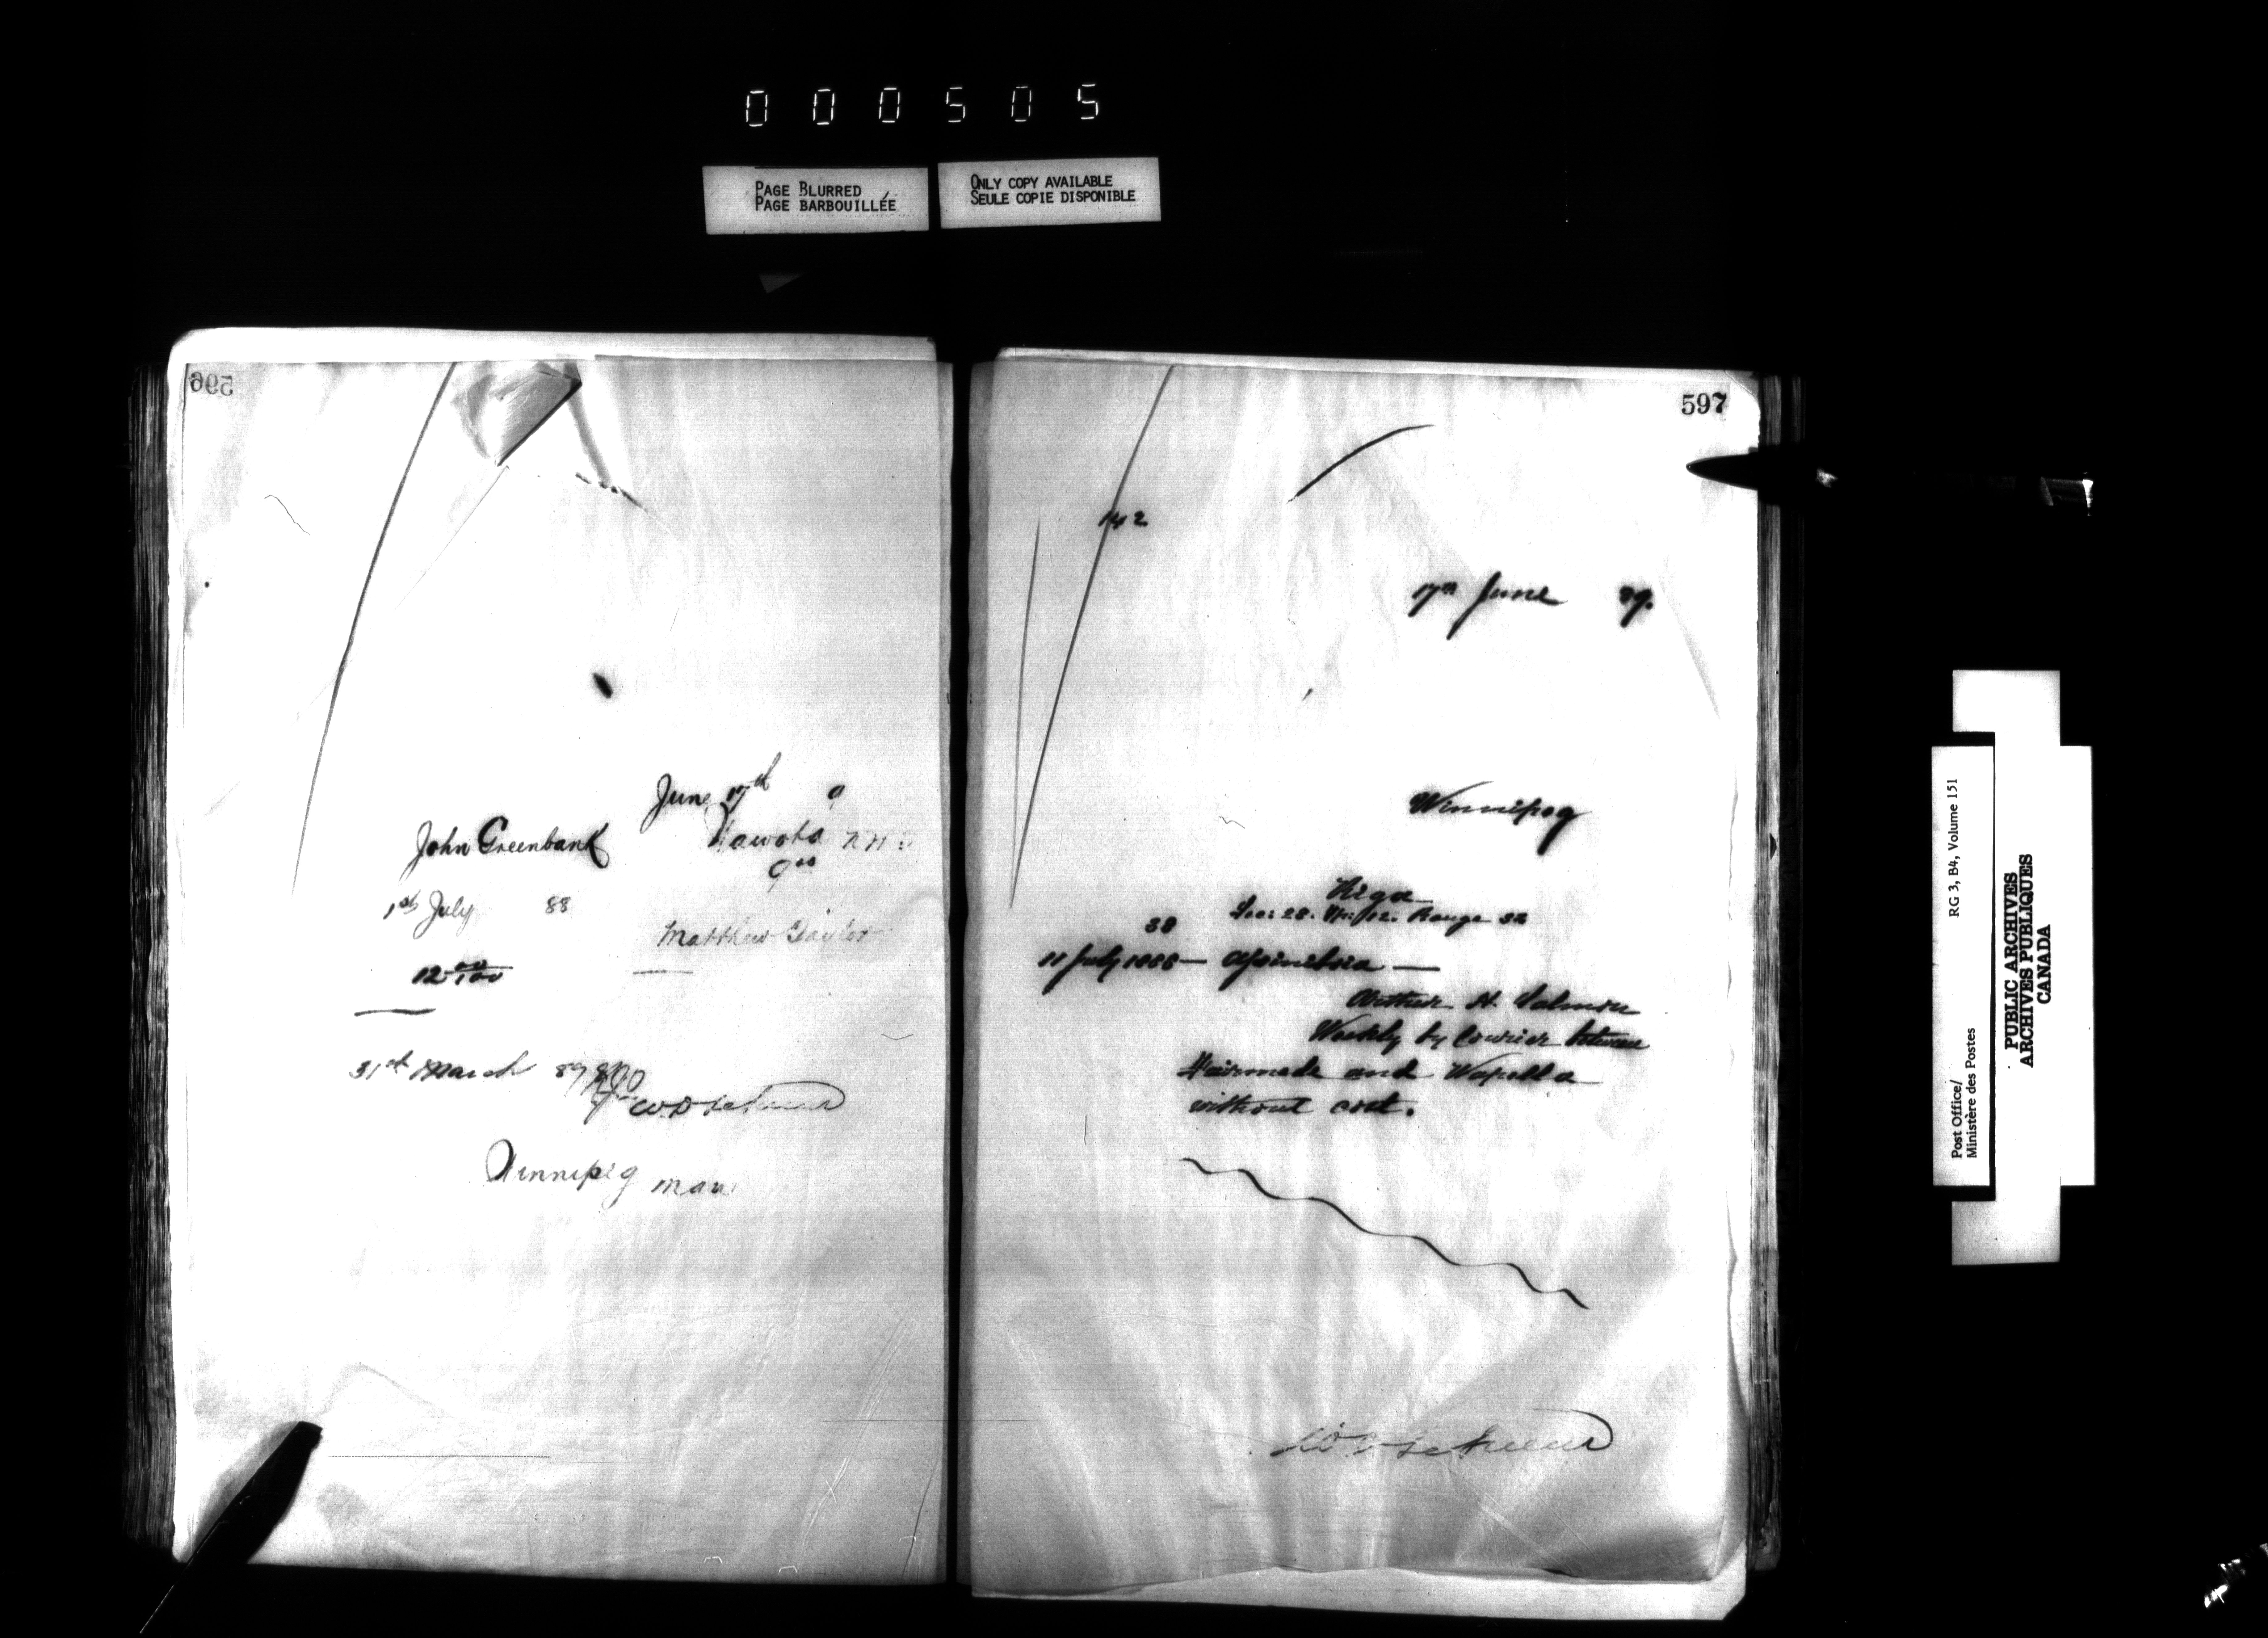 000505
PAGE BLURRED
PAGE BARBOUILLÉE
ONLY COPY AVAILABLE
SEULE COPIE DISPONIBLE
596
June 17th 9
John Greenbank
Wawota N.W.
9
1st July 88
Matthew Taylor
12 00/100
31st March 89
Winnipeg Man
597
142
17th June 89.
Winnipeg
Riga
Sec: 28. Tp: 12. Range 32
38
11 July 1888 — Assiniboia —
Arthur H. Salmon
Weekly by Courier between
Fairmede and Wapella
without cost.
Post Office/
Ministère des Postes
RG 3, B4, Volume 151
PUBLIC ARCHIVES
ARCHIVES PUBLIQUES
CANADA